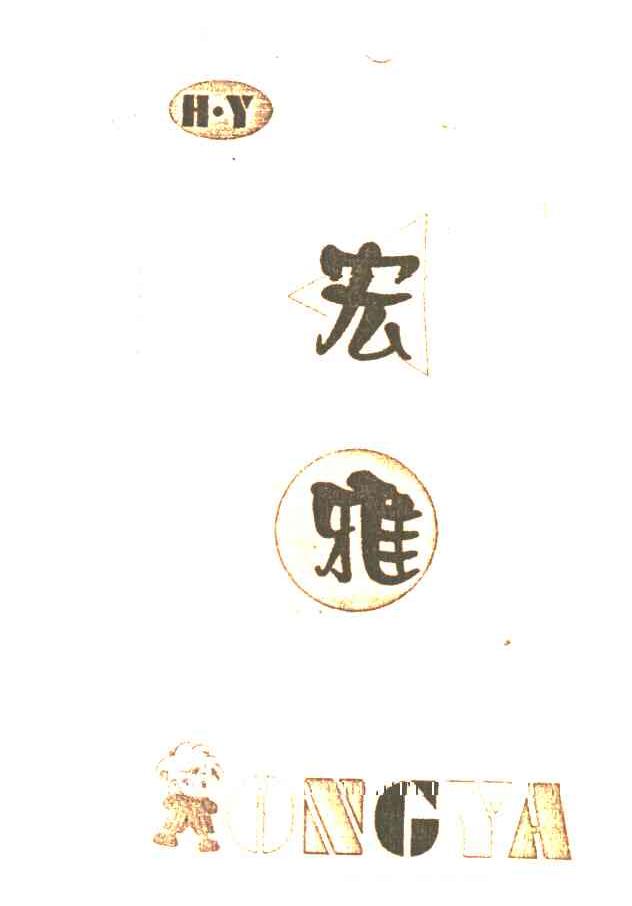 H·Y
宏
雅
ONGYA